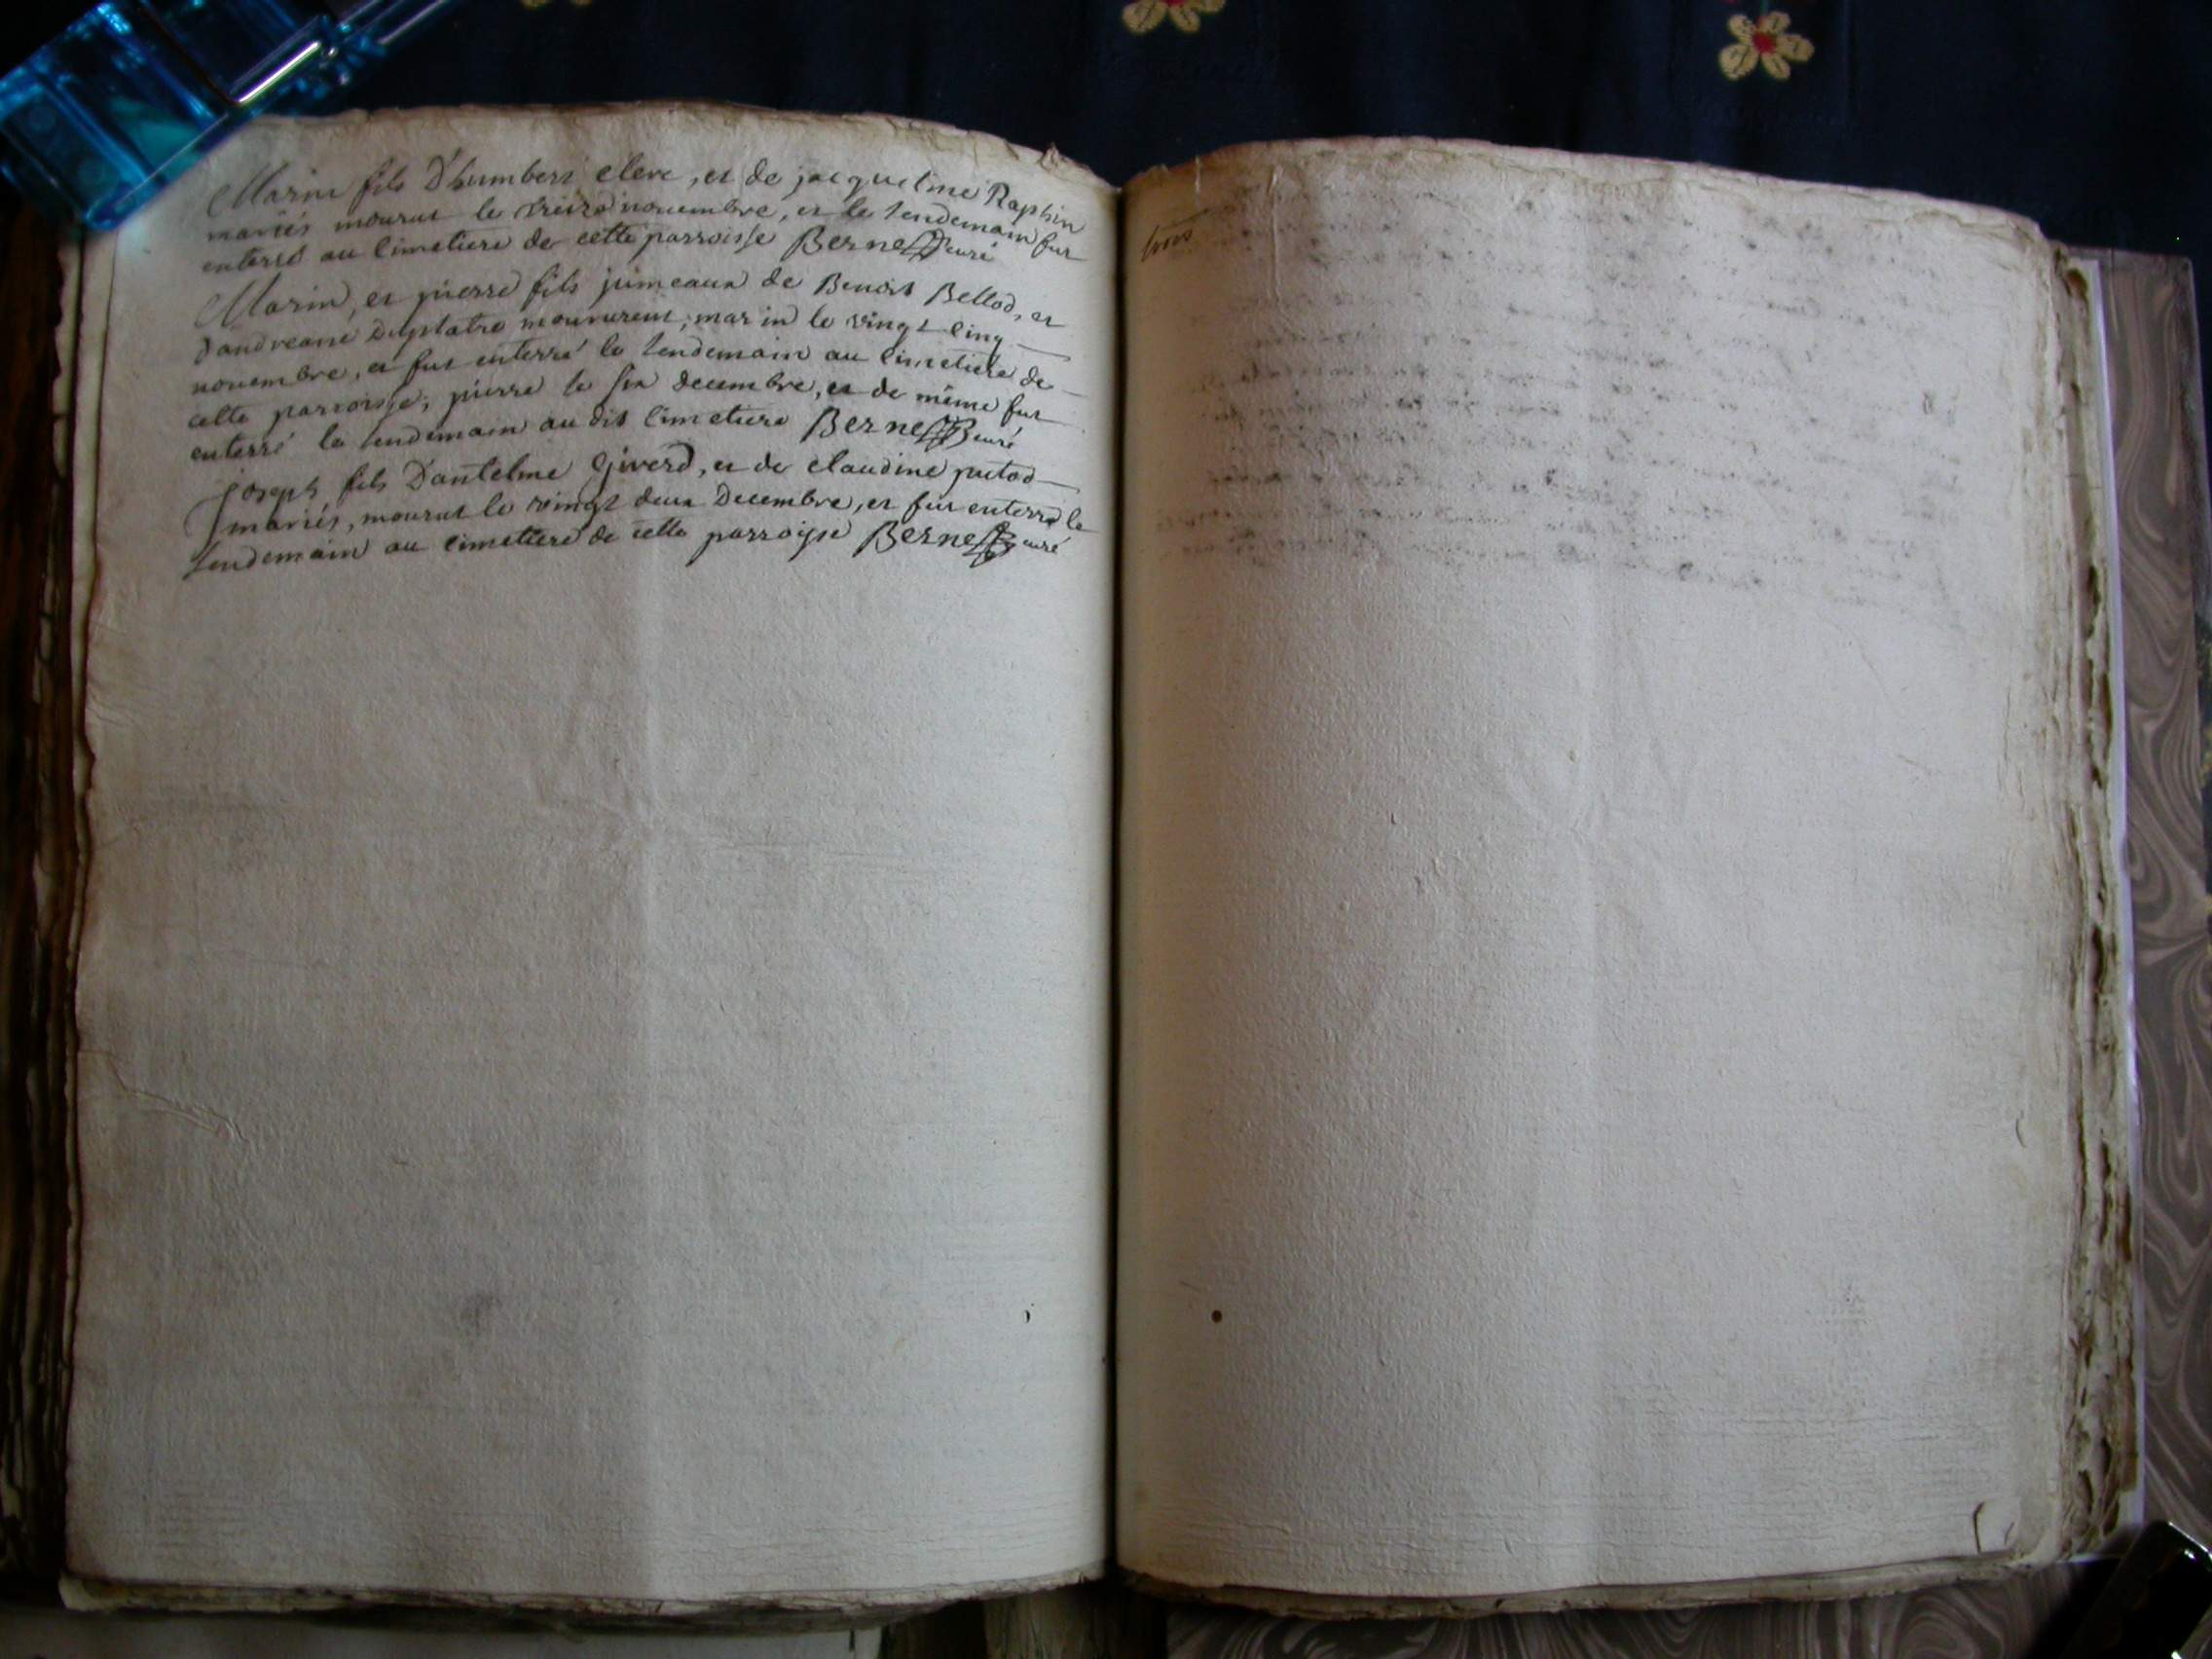 Marin fils D'humbert cleve, et de jacqueline Raphin
mariés mourut le treize novembre, et le lendemain fut
enterré au cimetiere de cette parroisse Bernet curé
Marin, et pierre fils jumeaux de Benoit Bellod, et
D'andreane Duplatre moururent, marin le vingt cinq
novembre, et fut enterré le lendemain au cimetiere de
cette parroisse, pierre le six decembre, et de même fut
enterré le lendemain au dit cimetiere Bernet curé
joseph fils D'antelme Giverd, et de claudine putod
mariés, mourut le vingt deux Decembre, et fut enterré le
lendemain au cimetiere de cette parroisse Bernet curé